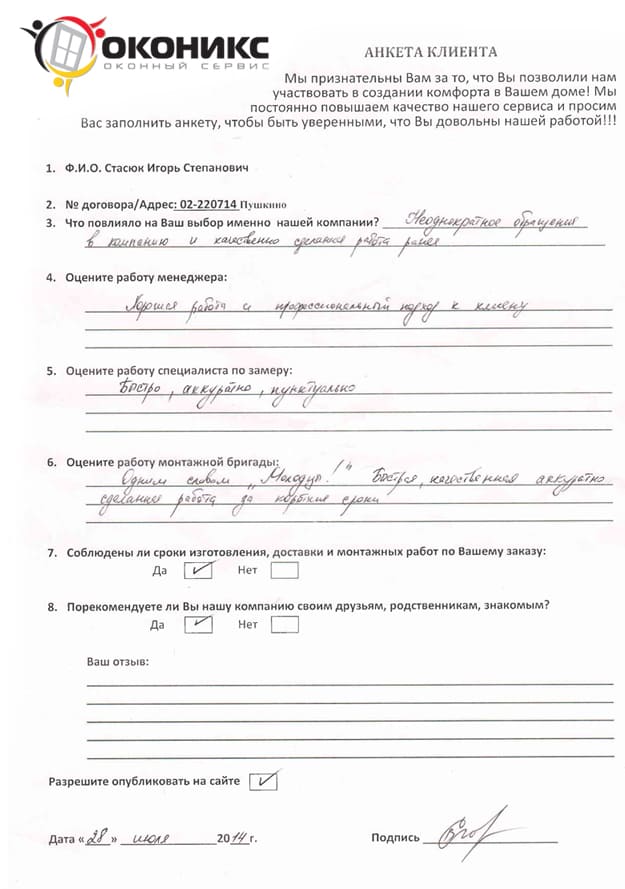 ОКОНИКС
ОКОННЫЙ СЕРВИС
АНКЕТА КЛИЕНТА
Мы признательны Вам за то, что Вы позволили нам
участвовать в создании комфорта в Вашем доме! Мы
постоянно повышаем качество нашего сервиса и просим
Вас заполнить анкету, чтобы быть уверенными, что Вы довольны нашей работой!!!
1. Ф.И.О. Стасюк Игорь Степанович
2. № договора/Адрес: 02-220714 Пушкино
3. Что повлияло на Ваш выбор именно нашей компании? Неоднократное обращения
в компанию и качественно сделанная работа ранея
4. Оцените работу менеджера:
Хорошея работа и профессиональный подход к клиену
5. Оцените работу специалиста по замеру:
Быстро, аккуратно, пунктуально
6. Оцените работу монтажной бригады:
Одним словом „Молодцы!" Быстрая, качественная аккуратно
сделанная работа за короткие сроки
7. Соблюдены ли сроки изготовления, доставки и монтажных работ по Вашему заказу:
Да ✓ Нет
8. Порекомендуете ли Вы нашу компанию своим друзьям, родственникам, знакомым?
Да ✓ Нет
Ваш отзыв:
Разрешите опубликовать на сайте ✓
Дата «28» июля 2014г. Подпись